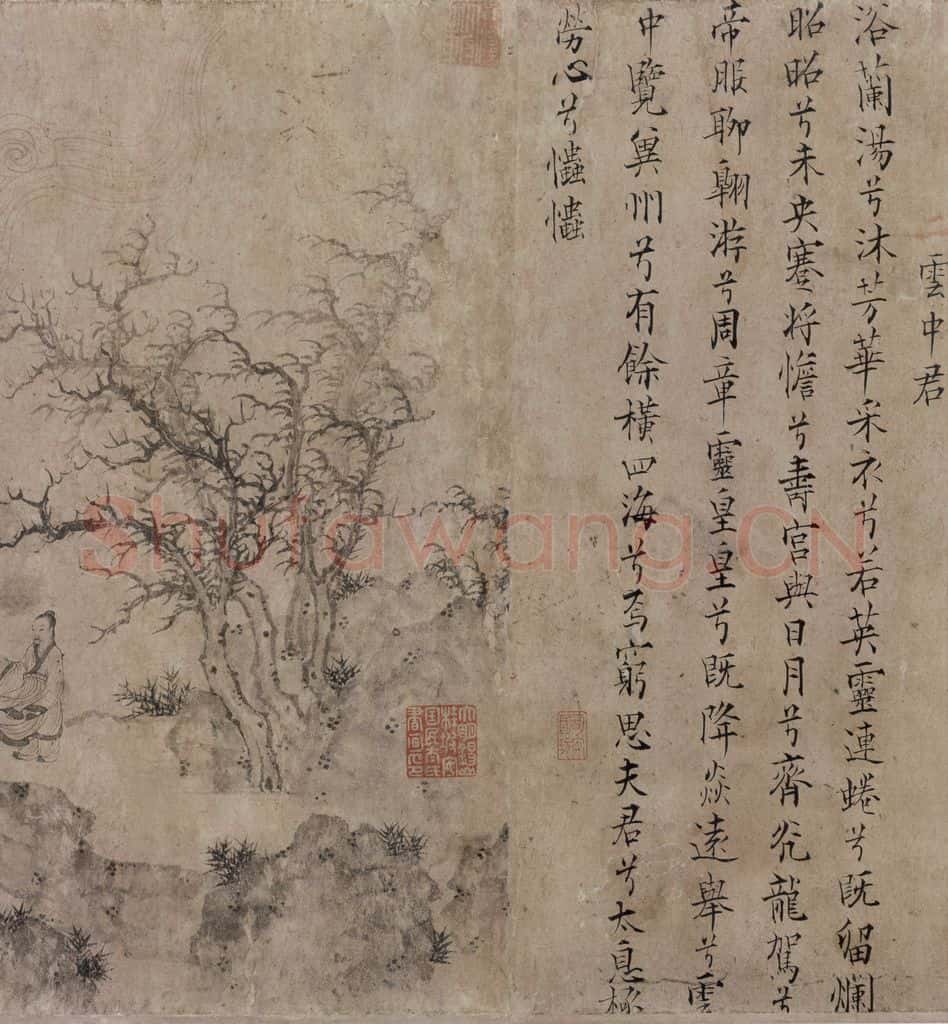 雲中君
浴蘭湯兮沐芳華采衣兮若英靈連蜷兮既留爛
昭昭兮未央蹇將憺兮壽宮與日月兮齊光龍駕兮
帝服聊翱游兮周章靈皇皇兮既降焱遠舉兮雲
中覽兾州兮有餘橫四海兮焉窮思夫君兮太息極
勞心兮𢥞𢥞
Shufawang.CN